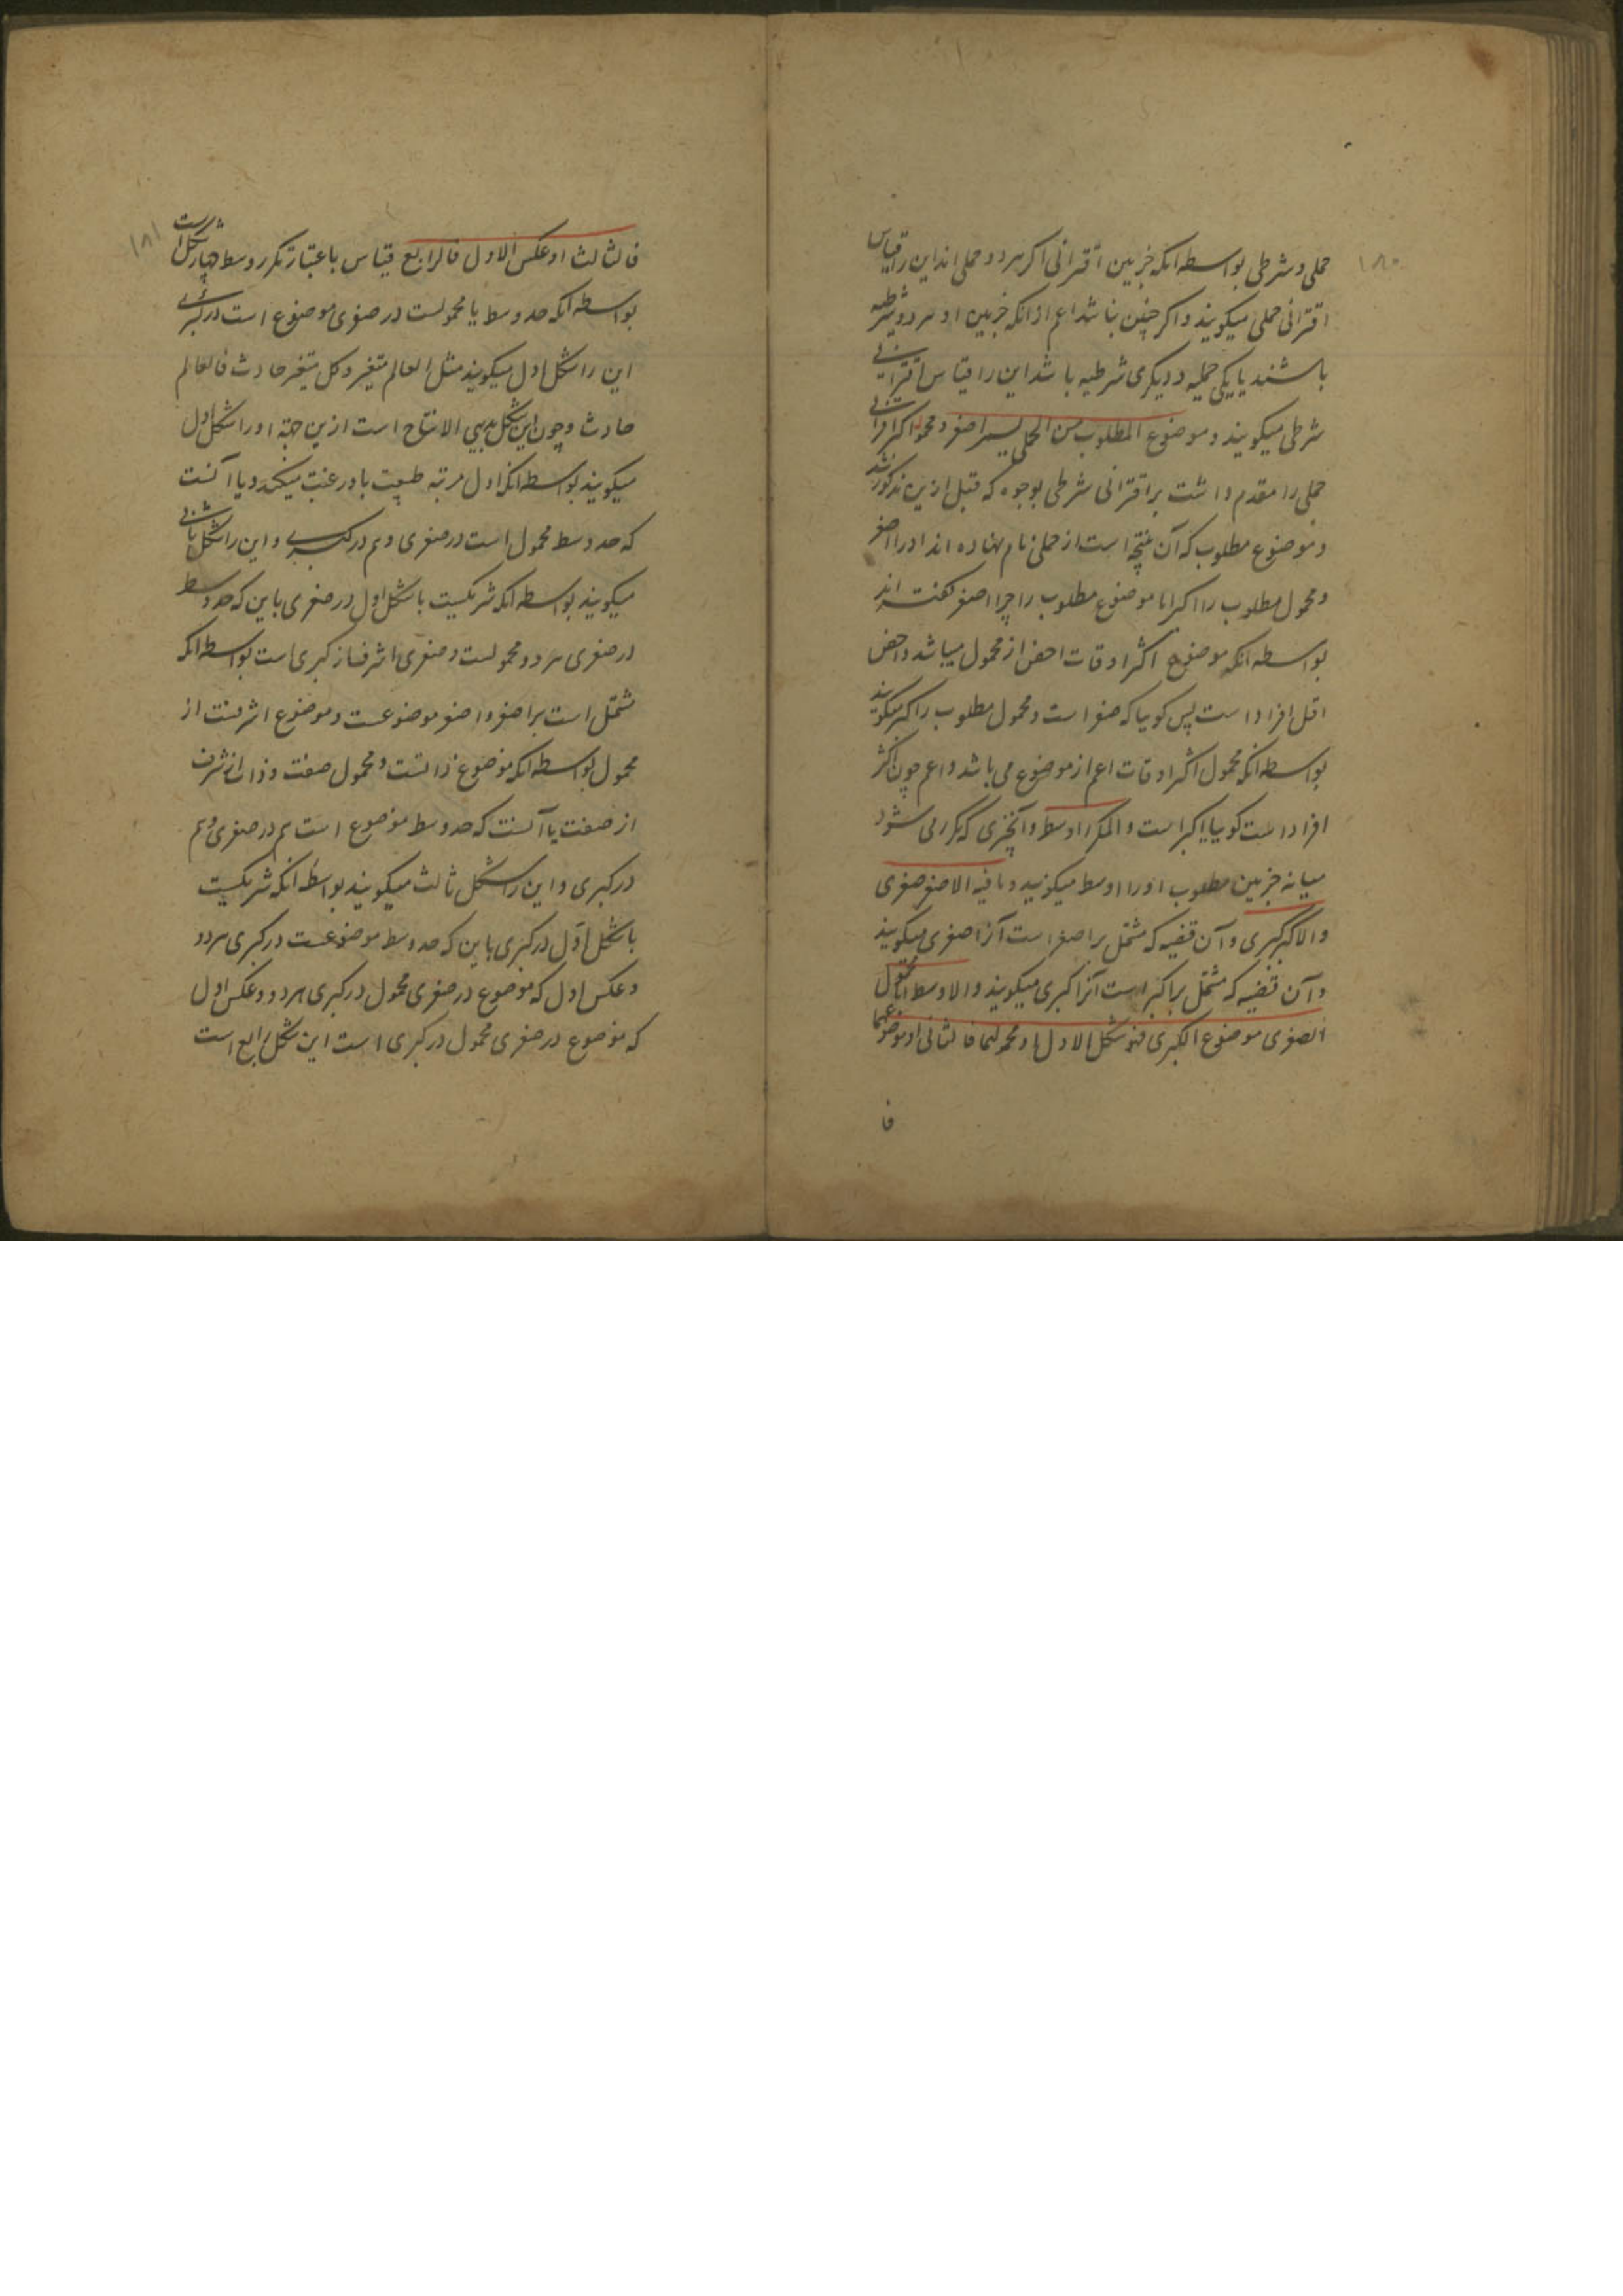 ۱۸۰
حملی و شرطی بواسطه انکه جزیین اقترانی اکر هر دو حملی اند این را قیاس
اقترانی حملی میکویند و اکر چنین نباشد اعم از انکه جزیین او هر دو شرطیه
باشند یا یکی حملیه و دیکری شرطیه باشد این را قیاس اقترانی
شرطی میکویند و موضوع المطلوب من الحملی یسمی اصغر و محموله اکبر اقترانی
حملی را مقدم داشت بر اقترانی شرطی بوجوه که قبل ازین مذکور شد
و موضوع مطلوب که آن نتیجه است از حملی نام نهاده اند او را اصغر
و محمول مطلوب را اکبر اما موضوع مطلوب را چرا اصغر کفته اند
بواسطه انکه موضوع اکثر اوقات اخص از محمول میباشد و اخص
اقل افراد است پس کویا که صغر است و محمول مطلوب را اکبر میکویند
بواسطه انکه محمول اکثر اوقات اعم از موضوع می باشد و اعم چون اکثر
افراد است کویا اکبر است و المکرر اوسط و آنچیزی که مکرر می شود
میانه جزیین مطلوب او را اوسط میکویند و ما فیه الاصغر صغری
والاکبر کبری و آن قضیه که مشتمل بر اصغر است آنرا صغری میکویند
و آن قضیه که مشتمل بر اکبر است آنرا کبری میکویند و الاوسط اما محمول
الصغری موضوع الکبری فهو شکل الاول او محمولهما فالثانی او موضوعهما
فا
۱۸۱
فالثالث او عکس الاول فالرابع قیاس باعتبار تکرر وسط چهار شکل است
بواسطه انکه حد وسط یا محمولست در صغری موضوع است در کبری
این را شکل اول میکویند مثل العالم متغیر و کل متغیر حادث فالعالم
حادث و چون این شکل بدیهی الانتاج است ازین جهة او را شکل اول
میکویند بواسطه انکه اول مرتبه طبیعت باو رغبت میکند و یا آنست
که حد وسط محمول است در صغری و هم در کبری و این را شکل ثانی
میکویند بواسطه انکه شریکست با شکل اول در صغری باین که حد وسط
در صغری هر دو محمولست و صغری اشرف از کبری است بواسطه انکه
مشتمل است بر اصغر و اصغر موضوعست و موضوع اشرفست از
محمول بواسطه انکه موضوع ذاتست و محمول صفت و ذات اشرف
از صفت یا آنست که حد وسط موضوع است هم در صغری و هم
در کبری و این را شکل ثالث میکویند بواسطه انکه شریکست
با شکل اول در کبری باین که حد وسط موضوعست در کبری هر دو
و عکس اول که موضوع در صغری محمول در کبری هر دو و عکس اول
که موضوع در صغری محمول در کبری است این شکل رابع است